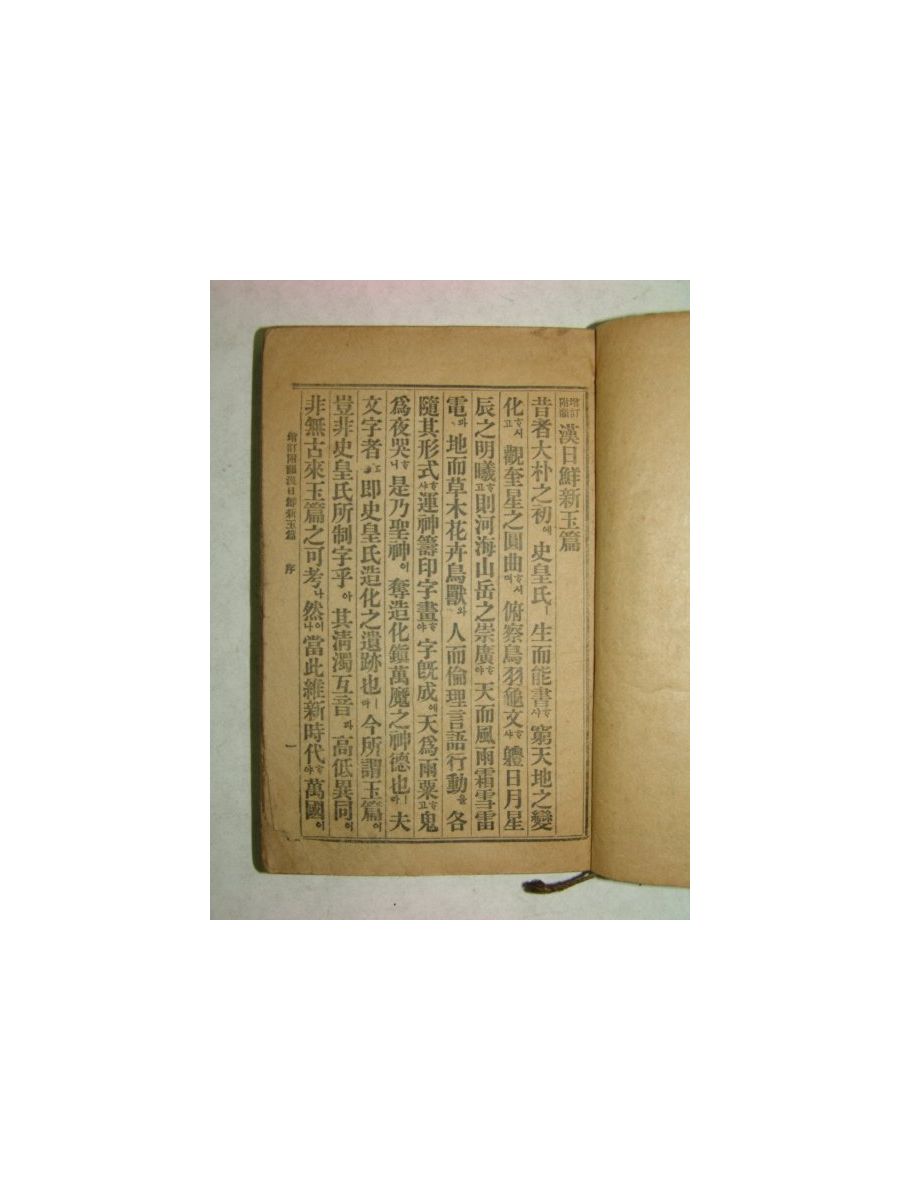 增訂附圖 漢日鮮新玉篇
昔者大朴之初에 史皇氏ㅣ 生而能書ᄒᆞ사 窮天地之變
化ᄒᆞ시고 觀奎星之圓曲ᄒᆞ시며 俯察鳥羽龜文ᄒᆞ샤 軆日月星
辰之明曦ᄒᆞ고 則河海山岳之崇廣ᄒᆞ야 天而風雨霜雪雷
電과 地而草木花卉鳥獸와 人而倫理言語行動을 各
隨其形式ᄒᆞ샤 運神籌印字畫ᄒᆞ야 字旣成에 天爲雨粟ᄒᆞ고 鬼
爲夜哭ᄒᆞ니 是乃聖神이 奪造化鎭萬魔之神德也ㅣ라 夫
文字者ᄂᆞᆫ 即史皇氏造化之遺跡也ㅣ라 今所謂玉篇이
豈非史皇氏所制字乎아 其淸濁互音과 高低異同이
非無古來玉篇之可考나 然이나 當此維新時代ᄒᆞ야 萬國이
增訂附圖漢日鮮新玉篇 序 一